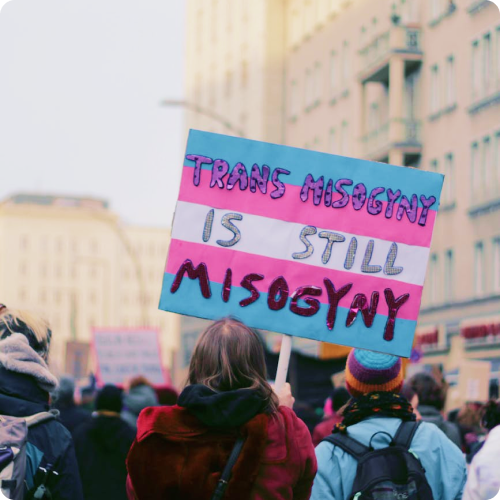 TRANS MISOGYNY
IS STILL
MISOGYNY